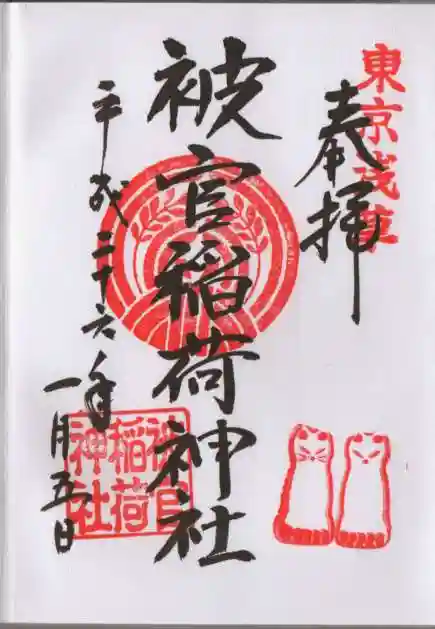 東京浅草
奉拝
被官稲荷神社
平成二十六年
一月五日
被官
稲荷
神社